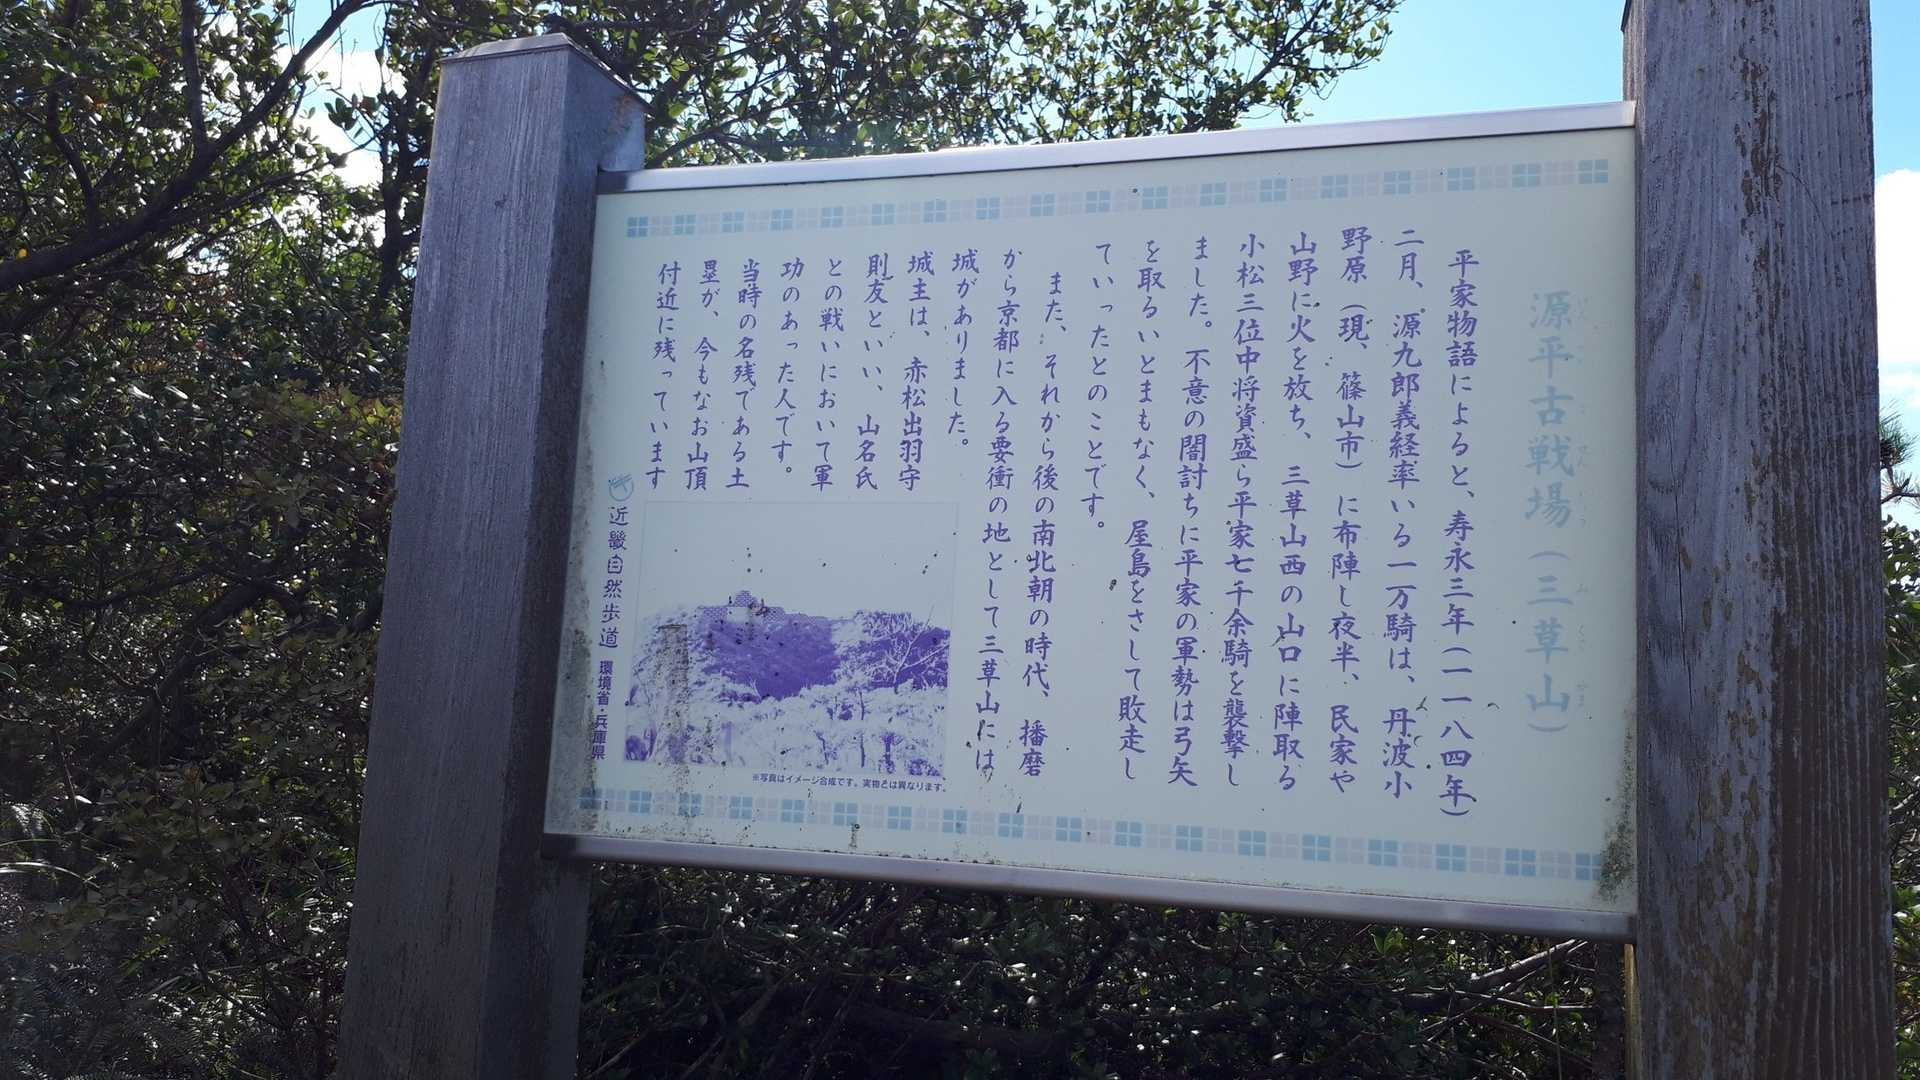 源平古戦場（三草山）
平家物語によると、寿永三年（一一八四年）
二月、源九郎義経率いる一万騎は、丹波小
野原（現、篠山市）に布陣し夜半、民家や
山野に火を放ち、三草山西の山口に陣取る
小松三位中将資盛ら平家七千余騎を襲撃し
ました。不意の闇討ちに平家の軍勢は弓矢
を取るいとまもなく、屋島をさして敗走し
ていったとのことです。
また、それから後の南北朝の時代、播磨
から京都に入る要衝の地として三草山には
城がありました。
城主は、赤松出羽守
則友といい、山名氏
との戦いにおいて軍
功のあった人です。
当時の名残である土
塁が、今もなお山頂
付近に残っています
※写真はイメージ合成です。実物とは異なります。
近畿自然歩道 環境省・兵庫県